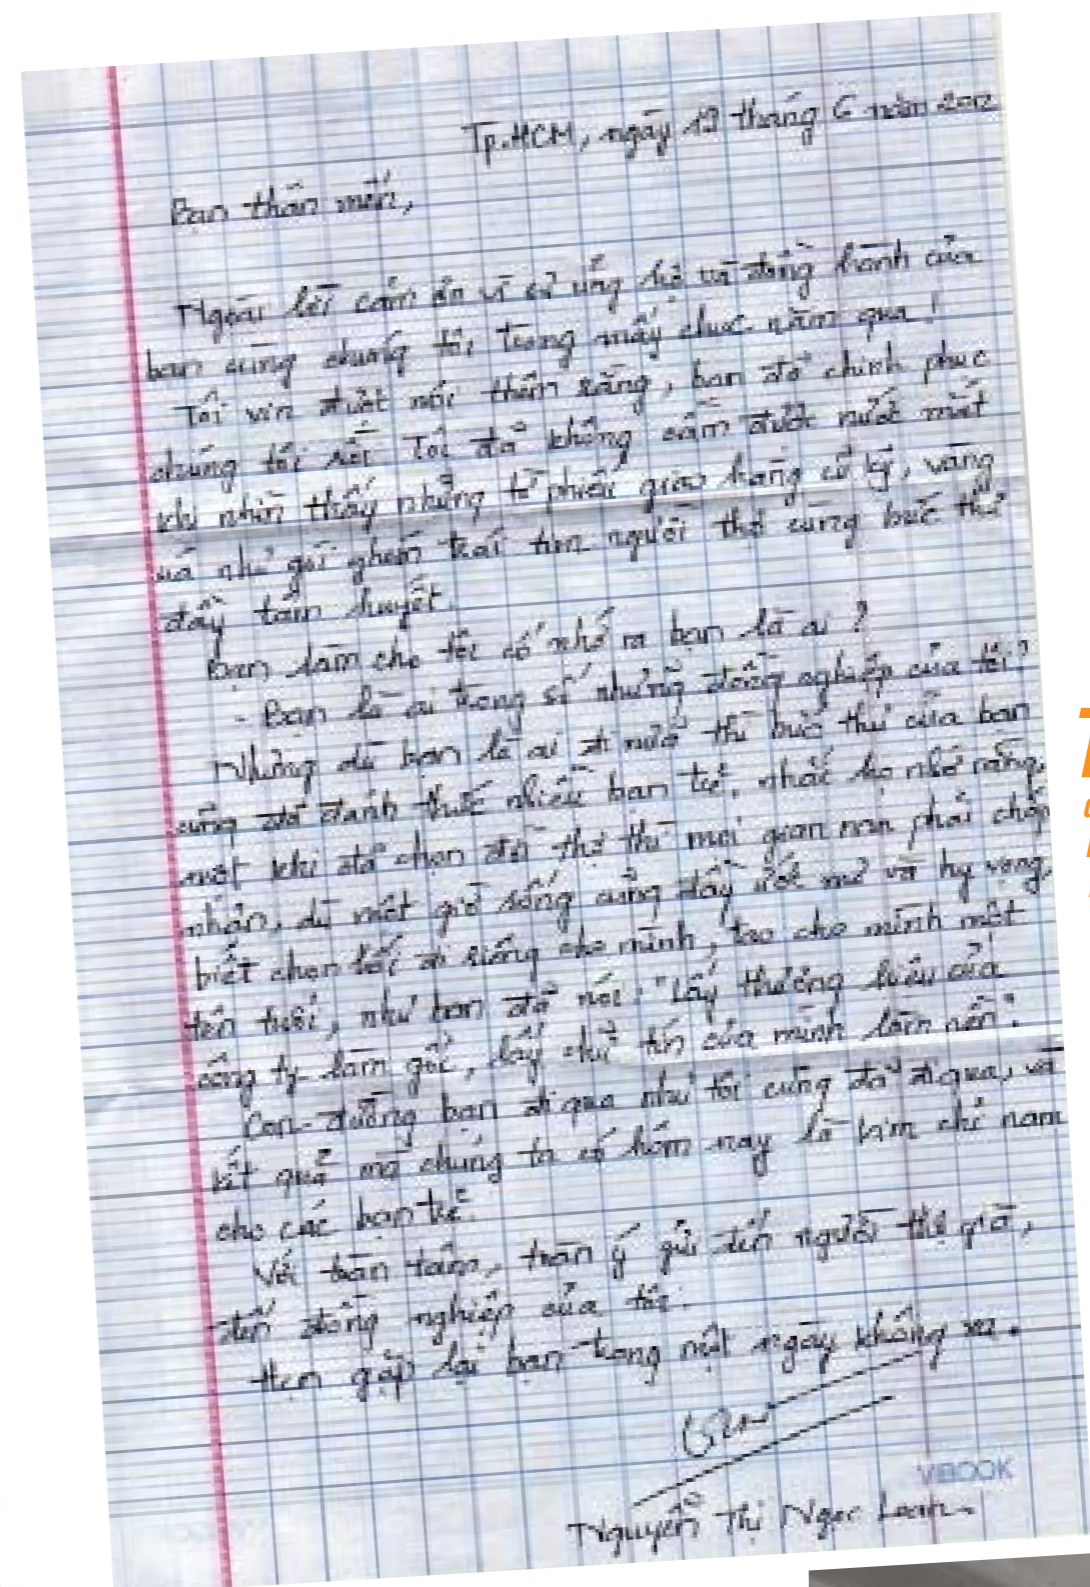 Tp.HCM, ngày 19 tháng 6 năm 2012
Bạn thân mến,
Ngoài lời cảm ơn vì sự ủng hộ và đồng hành của
bạn cùng chúng tôi trong mấy chục năm qua!
Tôi xin được nói thêm rằng, bạn đã chinh phục
chúng tôi rồi. Tôi đã không cầm được nước mắt
khi nhìn thấy những tờ phiếu giao hàng cũ kỹ, vàng
úa như gói ghém trái tim người thợ cùng bức thư
đầy tâm huyết.
Bạn làm cho tôi cố nhớ ra bạn là ai?
- Bạn là ai trong số những đồng nghiệp của tôi?
Nhưng dù bạn là ai đi nữa thì bức thư của bạn
cũng đã đánh thức nhiều bạn trẻ, nhắc họ nhớ rằng,
một khi đã chọn đời thợ thì mọi gian nan phải chấp
nhận, dù một giờ sống cũng đầy ước mơ và hy vọng,
biết chọn lối đi riêng cho mình, tạo cho mình một
tên tuổi, như bạn đã nói: "Lấy thương hiệu của
công ty làm gốc, lấy chữ tín của mình làm nền".
Con đường bạn đi qua như tôi cũng đã đi qua, và
kết quả mà chúng ta có hôm nay là kim chỉ nam
cho các bạn trẻ.
Với trân tâm, trân ý gửi đến người thợ già,
đến đồng nghiệp của tôi.
Hẹn gặp lại bạn trong một ngày không xa.
VIBOOK
Nguyễn Thị Ngọc Loan